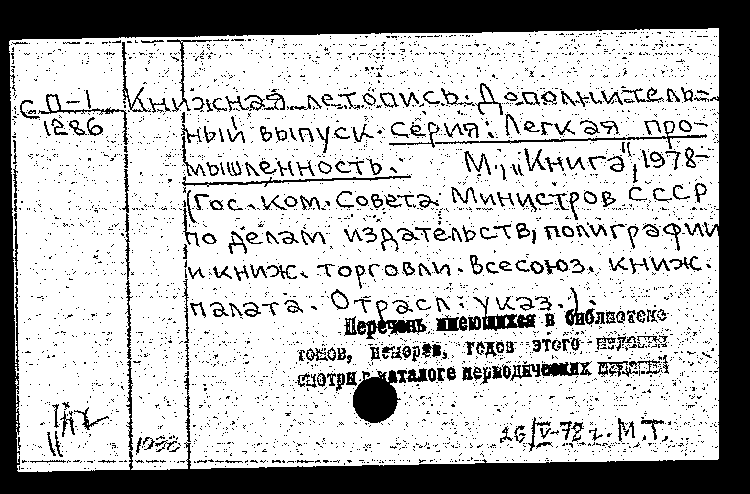 С П-1 Книжная летопись. Дополнитель-
1286 ный выпуск. Серия: Легкая про-
мышленность. М., "Книга", 1978-
(Гос. ком. Совета Министров СССР
по делам издательств, полиграфии
и книж. торговли. Всесоюз. книж.
палата. Отрасл. указ.).
Перечень имеющихся в библиотеке
томов, номеров, годов этого издания
смотри в каталоге периодических изданий
26/V-78 г. М.Т.